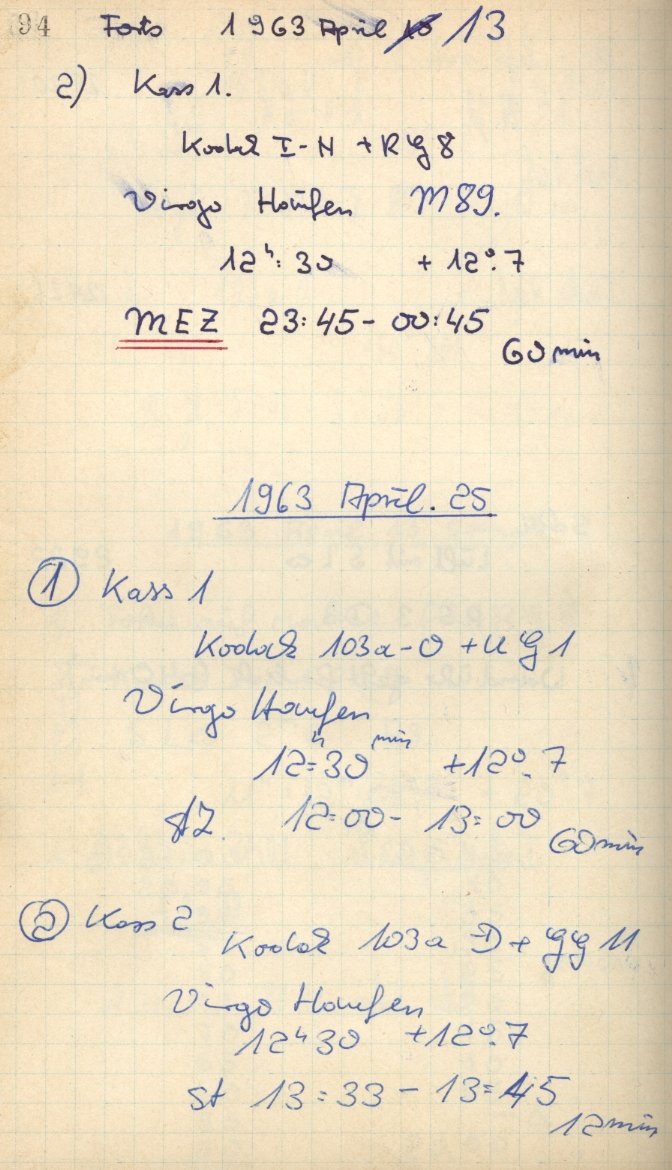 94 Forts 1963 April 13
2) Kass 1.
Kodak I-N + RG8
Virgo Haufen M89.
12h: 30 + 12°.7
MEZ 23:45 - 00:45
60 min
1963 April. 25
1 Kass 1
Kodak 103a-O + UG1
Virgo Haufen
12h=30min +12°.7
StZ. 12=00 - 13=00
60min
2 Kass 2
Kodak 103a D + GG 11
Virgo Haufen
12h30 +12°.7
St 13=33 - 13=45
12min